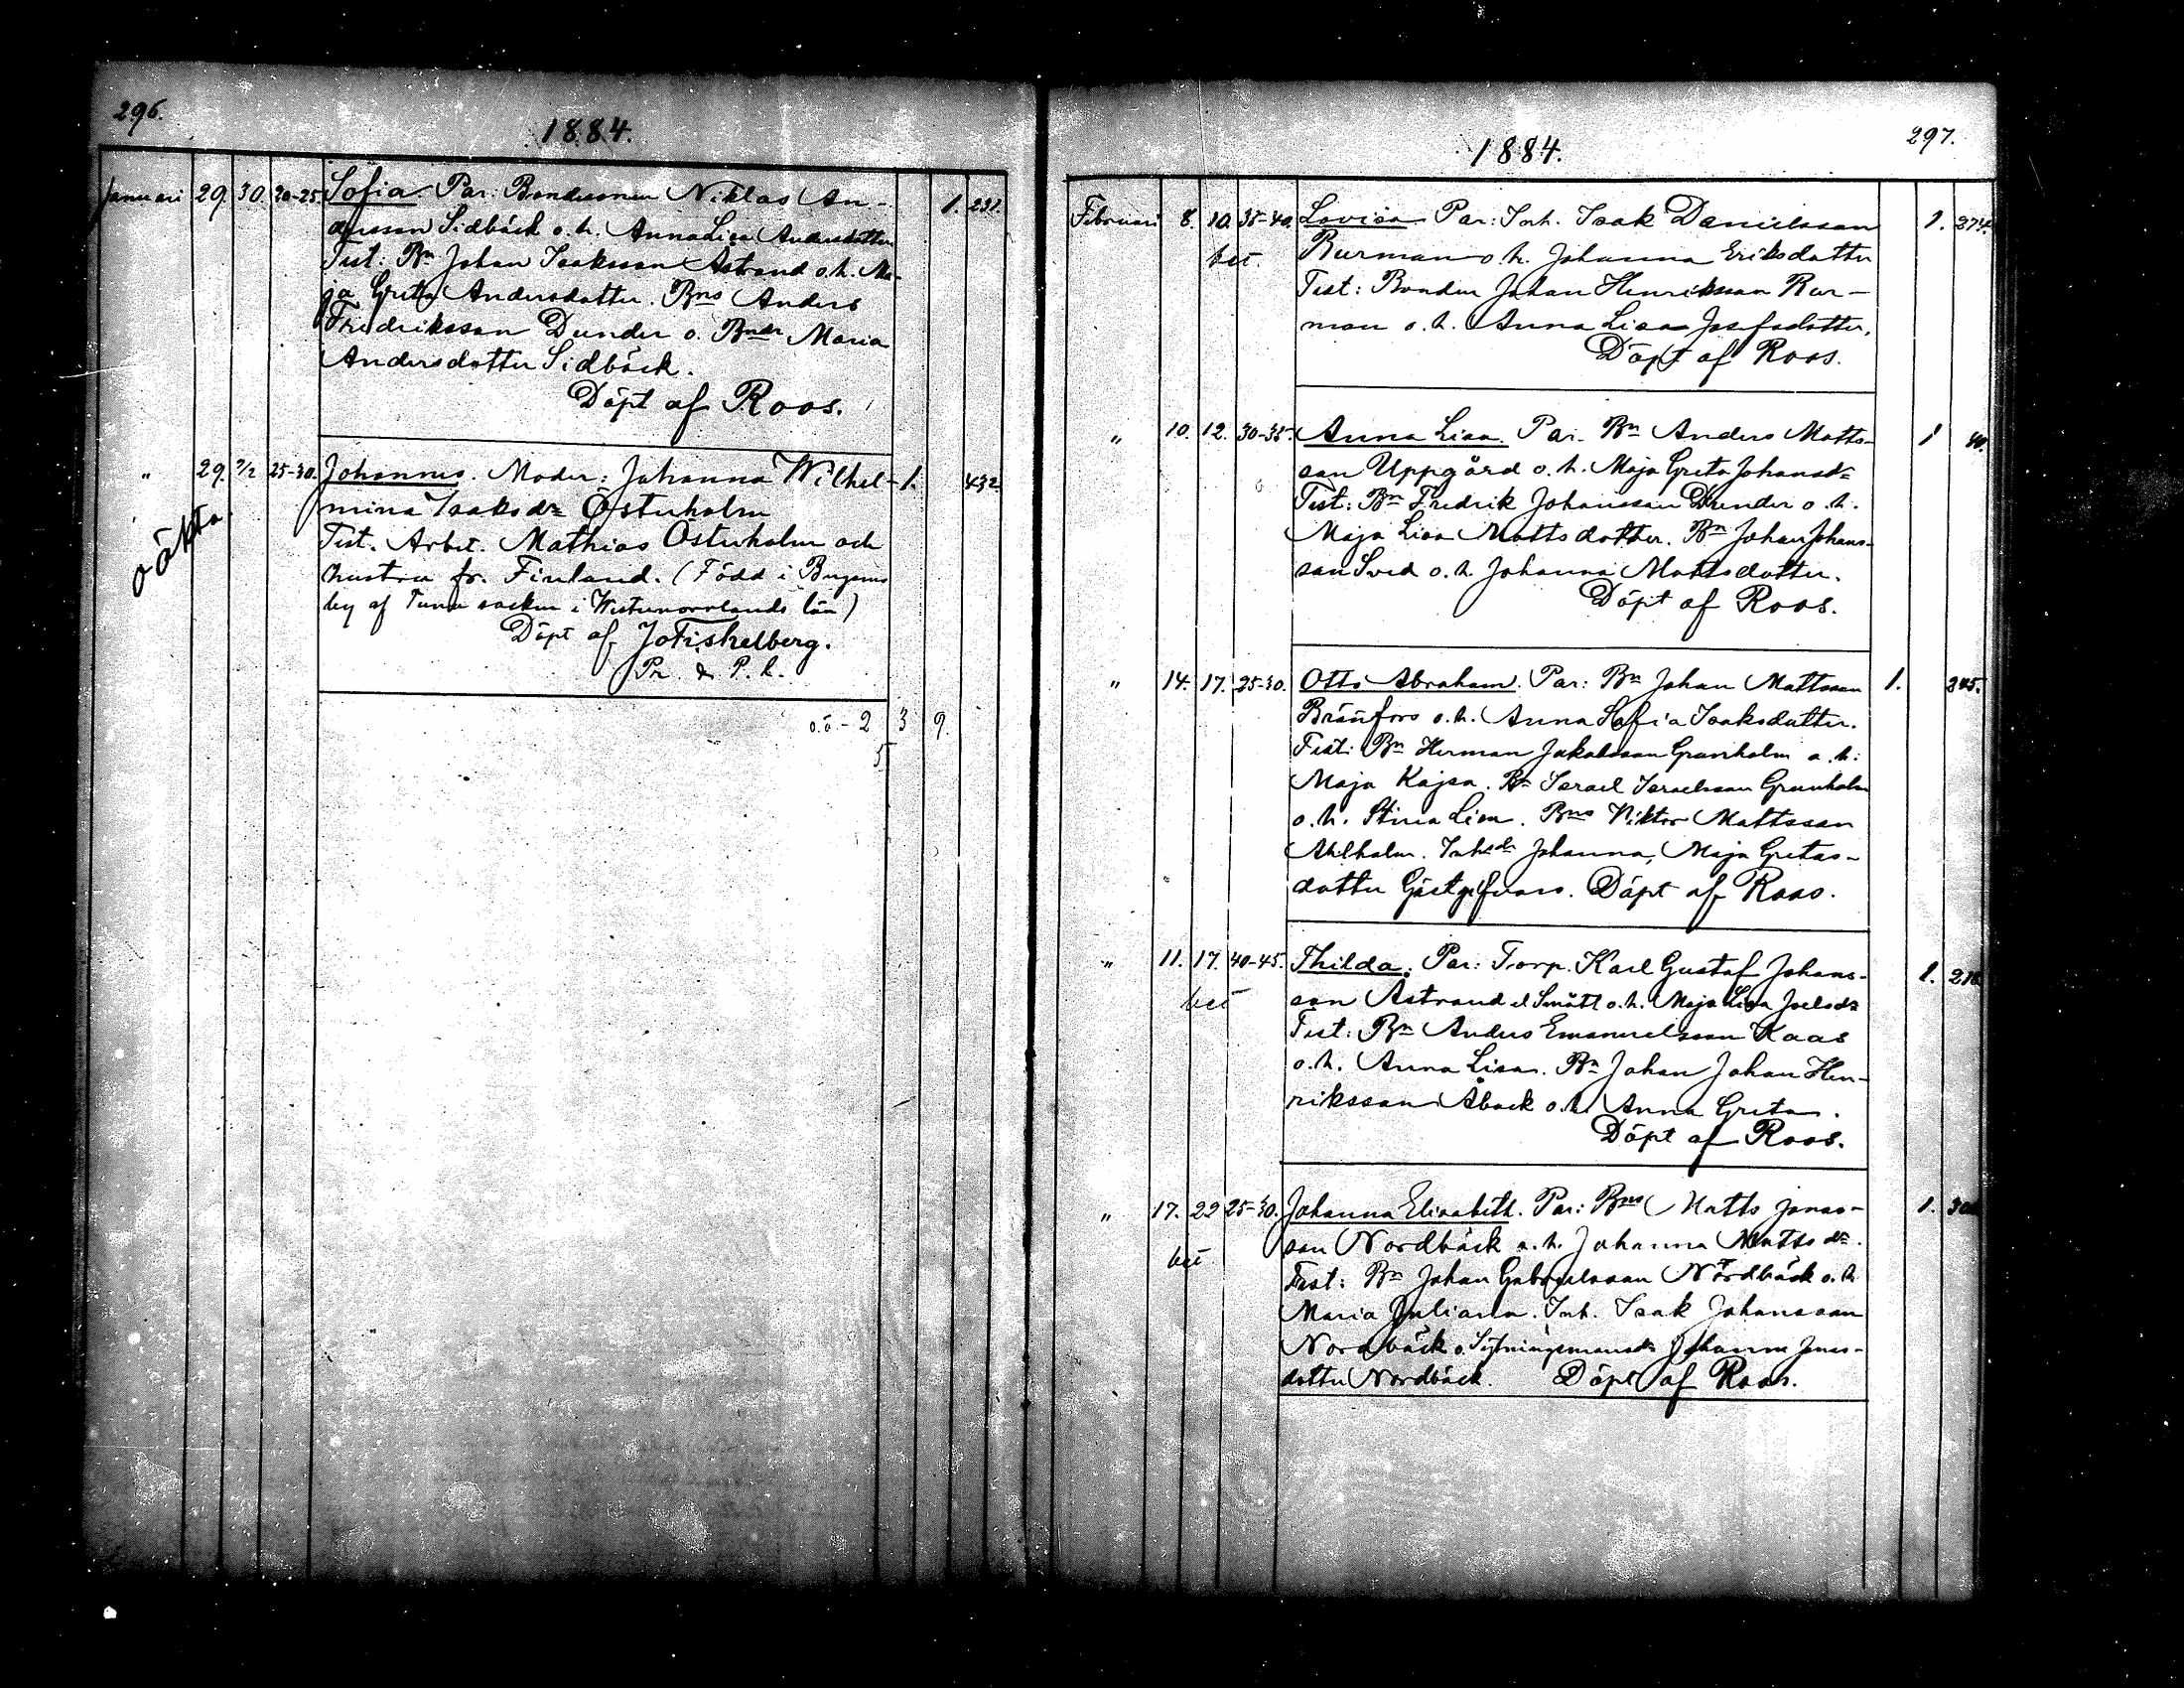 296.
1884.
Januari 29. 30. 20-25. Sofia. Par: Bondesonen Niklas An-
dersson Sidbäck o. h. Anna Lisa Andersdotter 1. 231.
Test: Bn Johan Isaksson Åstrand o. h. Ma-
ja Greta Andersdotter. Bns Anders
Fredriksson Dunder o. Bndr Maria
Andersdotter Sidbäck.
Döpt af Roos.
" 29. 2/2 25-30. Johannes. Moder: Johanna Wilhel- 1. 432
oäkta
mina Isaksdr Österholm
Test. Arbet. Mathias Österholm och
hustru fr. Finland. (Född i
by af Tuna socken i Westernorrlands län)
Döpt af
Pr. & P. h.
o.ä - 2 3 9.
5
1884.
297.
Februari 8. 10. 35-40. Lovisa. Par: Inh. Isak Danielsson 1. 274.
bet. Burman o. h. Johanna Eriksdotter
Test: Bonden Johan Henriksson Bur-
man o. h. Anna Lisa Josefsdotter.
Döpt af Roos.
" 10. 12. 30-35. Anna Lisa. Par. Bn Anders Matts- 1
son Uppgård o. h. Maja Greta Johansdr
Test: Bn Fredrik Johansson Dunder o. h.
Maja Lisa Mattsdotter. Bn Johan Johans-
son Sved o. h. Johanna Mattsdotter.
Döpt af Roos.
" 14. 17. 25-30. Otto Abraham. Par: Bn Johan Mattsson 1. 245.
Brännfors o. h. Anna Sofia Isaksdotter.
Test: Bn Herman Jakobsson Granholm o. h:
Maja Kajsa. Bn Israel Israelsson Granholm
o. h. Stina Lisa. Bns Viktor Mattsson
Ahlholm. Inhsdr Johanna, Maja Gretas-
dotter Gästgifvars. Döpt af Roos.
" 11. 17. 40-45. Thilda. Par: Torp. Karl Gustaf Johans- 1.
bet son Åstrand el Smått o. h. Maja Lisa Joelsdr
Test: Bn Anders Emanuelsson Kaas
o. h. Anna Lisa. Bn Johan Johan Hen-
riksson Åback o. h. Anna Greta.
Döpt af Roos.
" 17. 22 25-30. Johanna Elisabeth. Par: Bns Matts Jonas- 1.
son Nordbäck o. h. Johanna Mattsdr.
bet Test: Bn Johan Gabrielsson Nordbäck o. h
Maria Juliana. Inh. Isak Johansson
Nordbäck o. Sytningsmansdr Johanna Jonas-
dotter Nordbäck. Döpt af Roos.